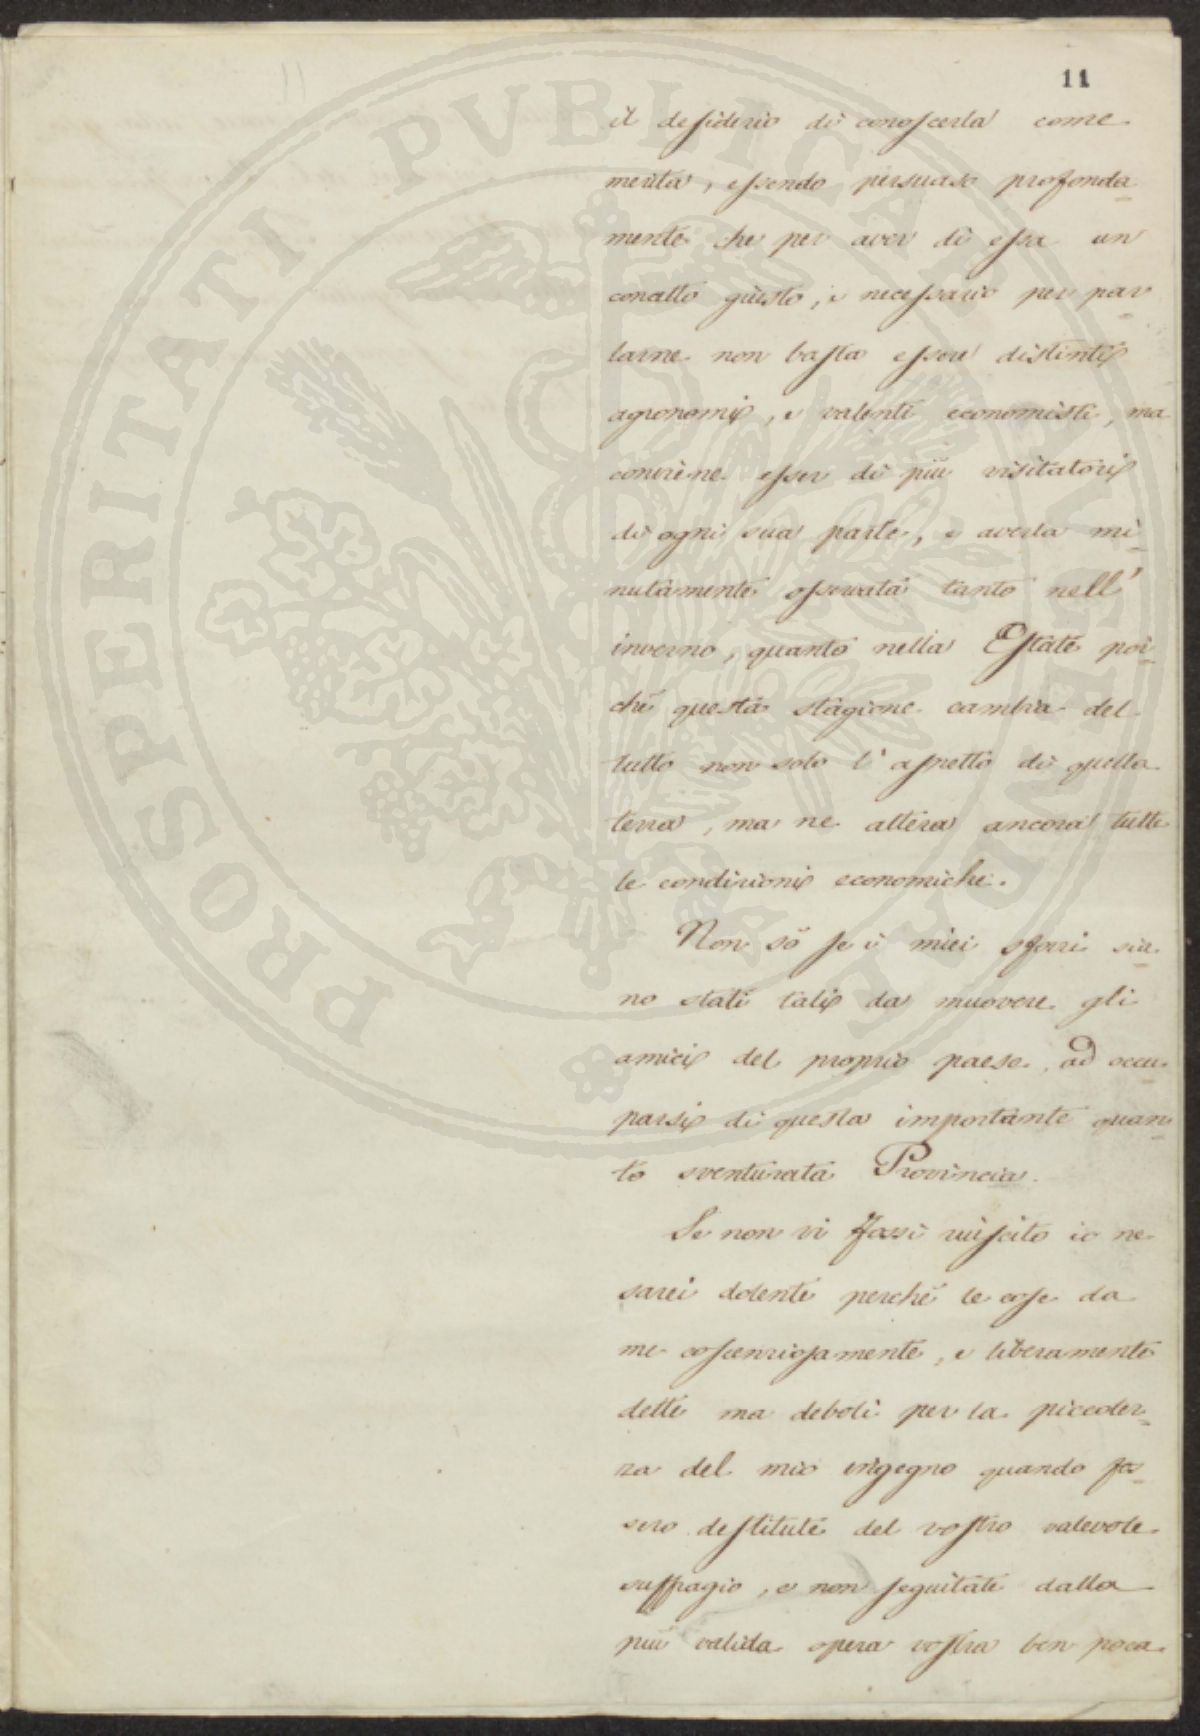 11
il desiderio di conoscerla come
merita, essendo persuaso profonda-
mente che per aver di essa un
concetto giusto, e necessario per par-
larne non basta essere distinti
agronomi, e valenti economisti, ma
conviene esser di più visitatori
di ogni sua parte, e averla mi-
nutamente osservata tanto nell'
inverno, quanto nella Estate poi-
chè questa stagione cambia del
tutto non solo l'aspetto di quella
terra, ma ne altera ancora tutte
le condizioni economiche.
Non sò se i miei sforzi sia-
no stati tali da muovere gli
amici del proprio paese, ad occu-
parsi di questa importante quan-
to sventurata Provincia.
Se non vi fossi riuscito io ne
sarei dolente perchè le cose da
me coscenziosamente, e liberamente
dette ma deboli per la piccolez-
za del mio ingegno quando fos-
sero destitute del vostro valevole
suffragio, e non seguitate dalla
più valida opera vostra ben poca
PROSPERITATI PVBLICAE AVGENDAE